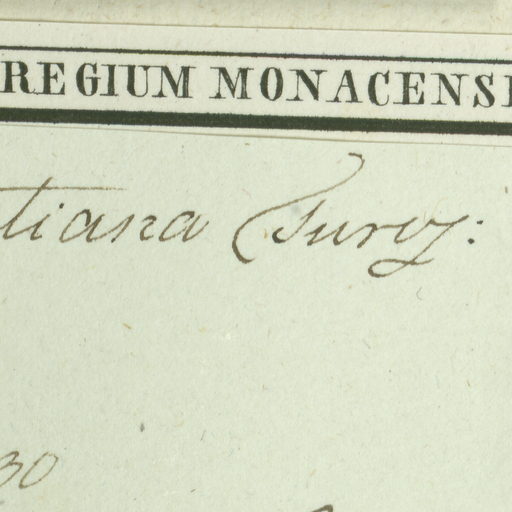 REGIUM MONACENS
tiana Turcz:
30